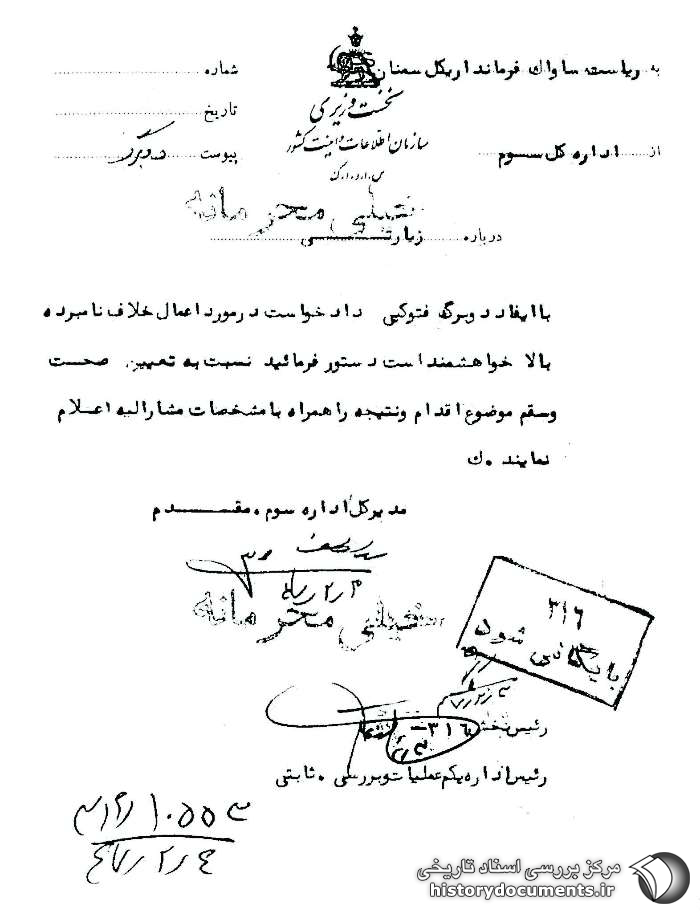 به ریاست ساواک فرمانداریکل سمنان
شماره
نخست وزیری
تاریخ
سازمان اطلاعات و امنیت کشور
پیوست دوبرگ
از اداره کل سوم
س.ا.و.ا.ک
خیلی محرمانه
درباره زیارتی
باایفاد دوبرگ فتوکپی دادخواست درمورد اعمال خلاف نامبرده
بالا خواهشمند است دستور فرمائید نسبت به تعیین صحت
وسقم موضوع اقدام ونتیجه راهمراه بامشخصات مشارالیه اعلام
نمایند.ک
مدیرکل اداره سوم.مقدم
خیلی محرمانه
۳۱۶
بایگانی شود
رئیس بخش ۳۱۶
رئیس اداره یکم عملیات وبررسی.ثابتی
مرکز بررسی اسناد تاریخی
historydocuments.ir